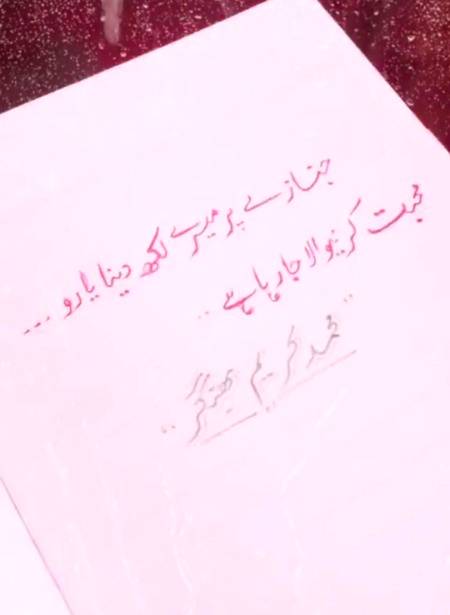 جنازے پر میرے لکھ دینا یارو ...
محبت کرنیوالا جا رہا ہے ..
" محمد کریم بھنگر "